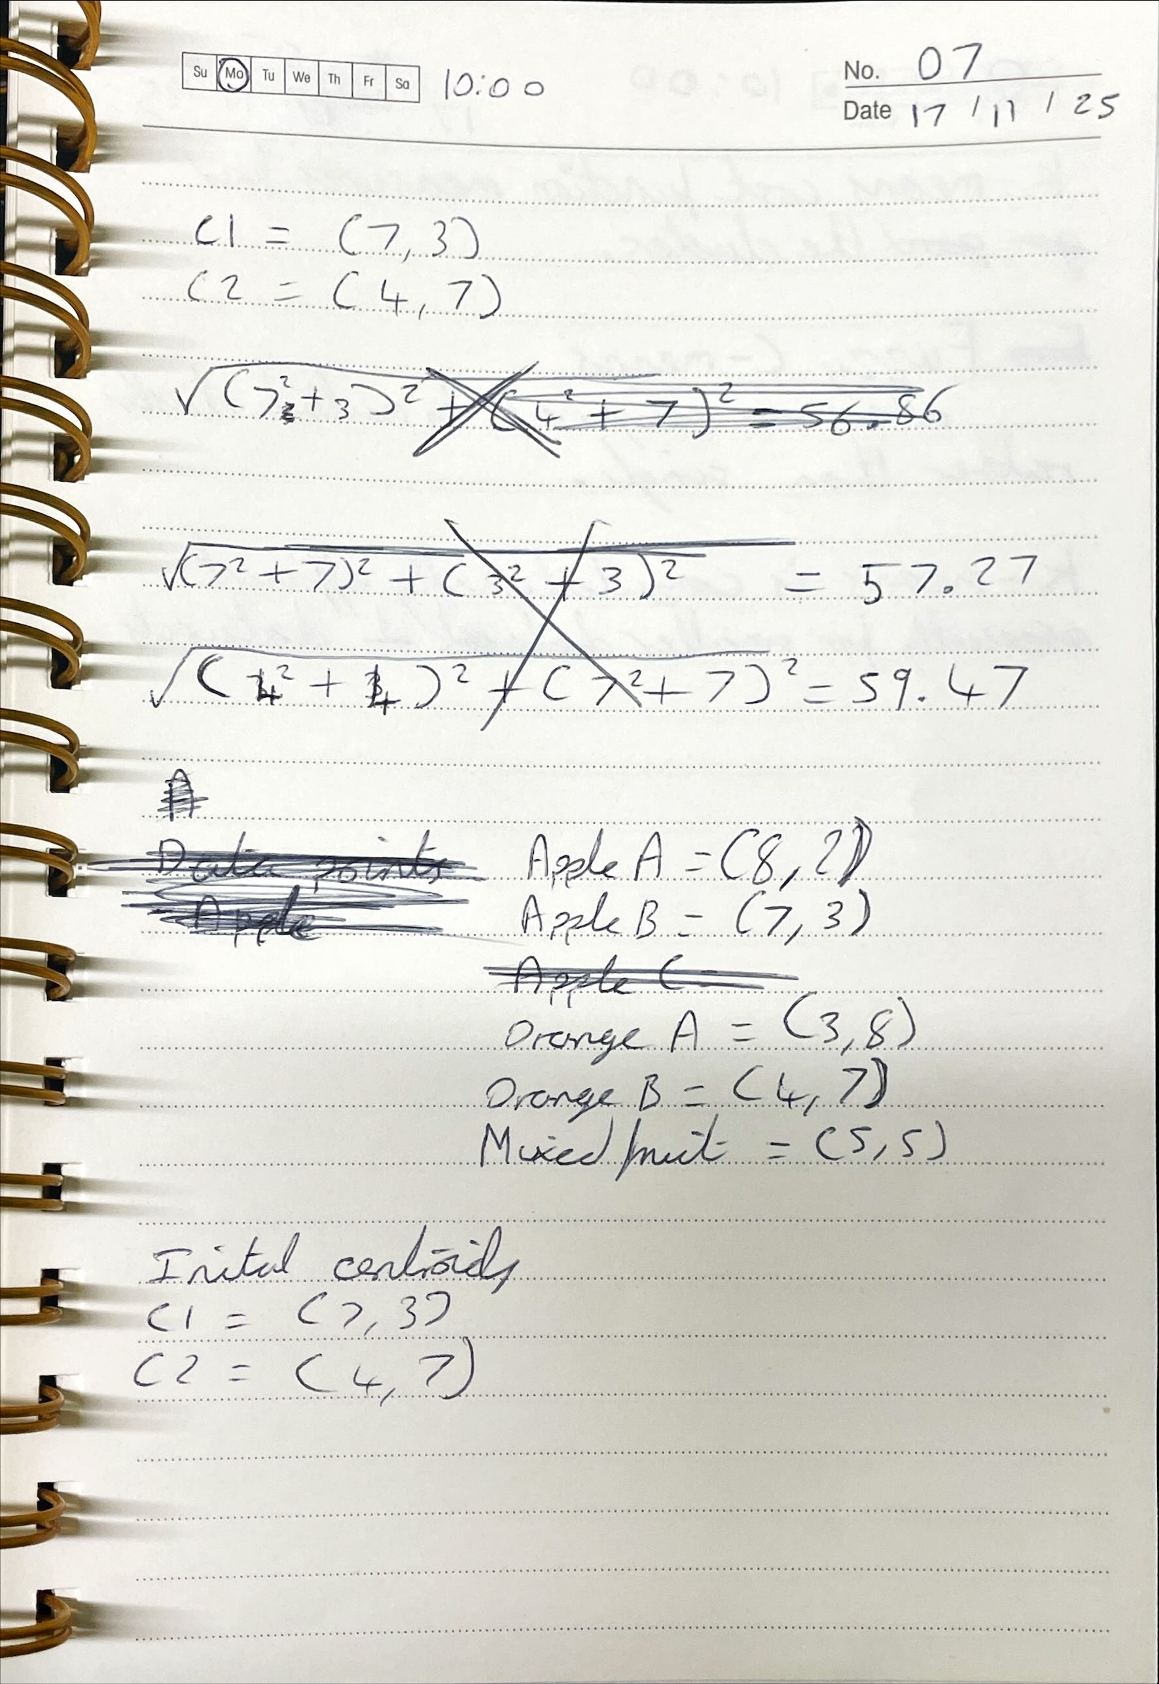 Su Mo Tu We Th Fr Sa 10:00 No. 07
Date 17 / 11 / 25
C1 = (7,3)
C2 = (4,7)
√(7²+3)² + (4²+7)² = 56.86
√(7²+7)² + (3²+3)² = 57.27
√(4²+4)² + (7²+7)² = 59.47
A
Data points Apple A = (8,2)
Apple Apple B = (7,3)
Apple C
Orange A = (3,8)
Orange B = (4,7)
Mixed fruit = (5,5)
Inital centroids
C1 = (7,3)
C2 = (4,7)